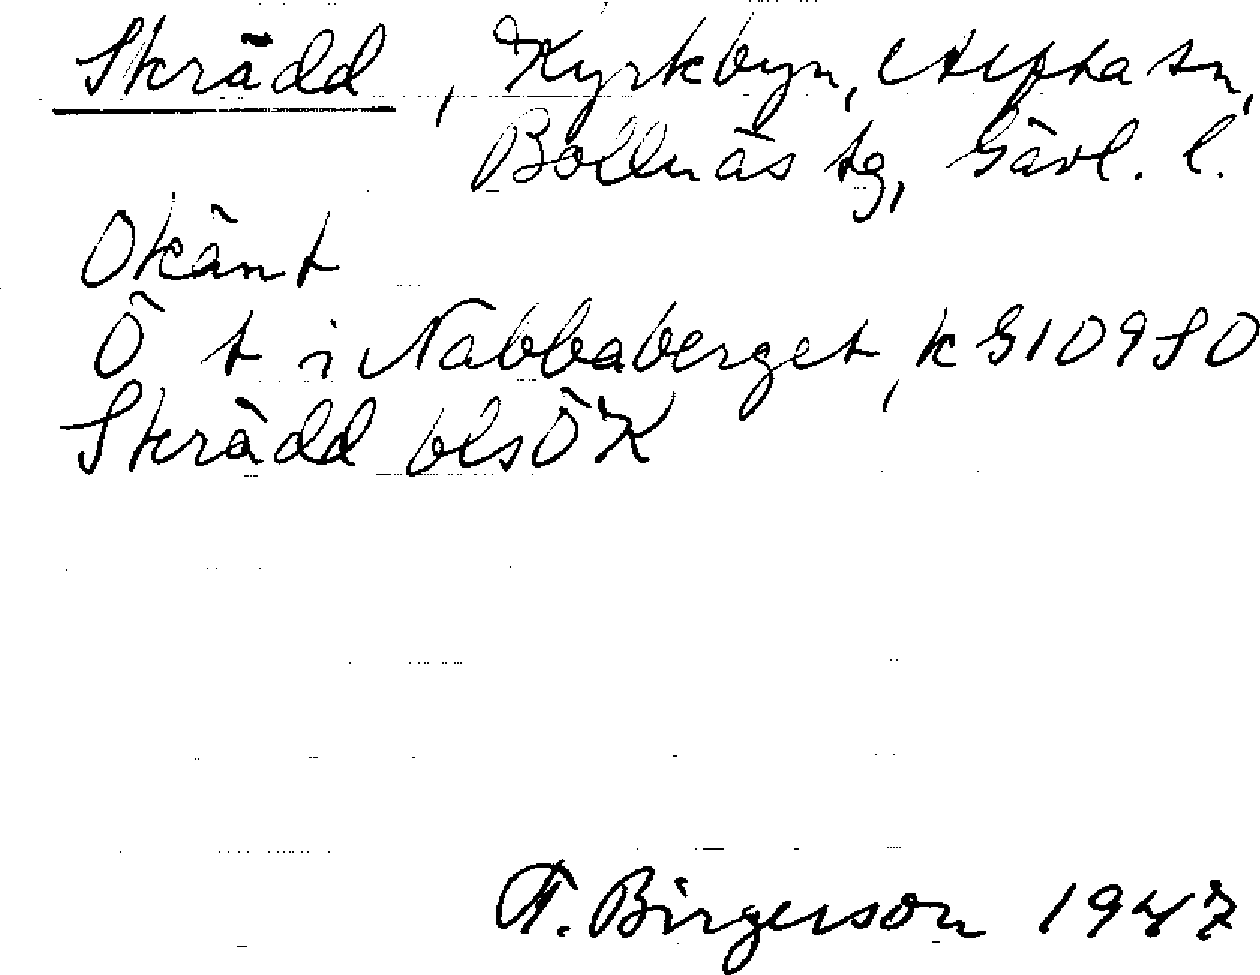 Skrädd, Kyrkbyn, Alfta sn,
Bollnäs tg, Gävl. l.
Okänt
Ö t i Nabbaberget, k G109SO
Skrädd bls ÖK
F. Birgerson 1947